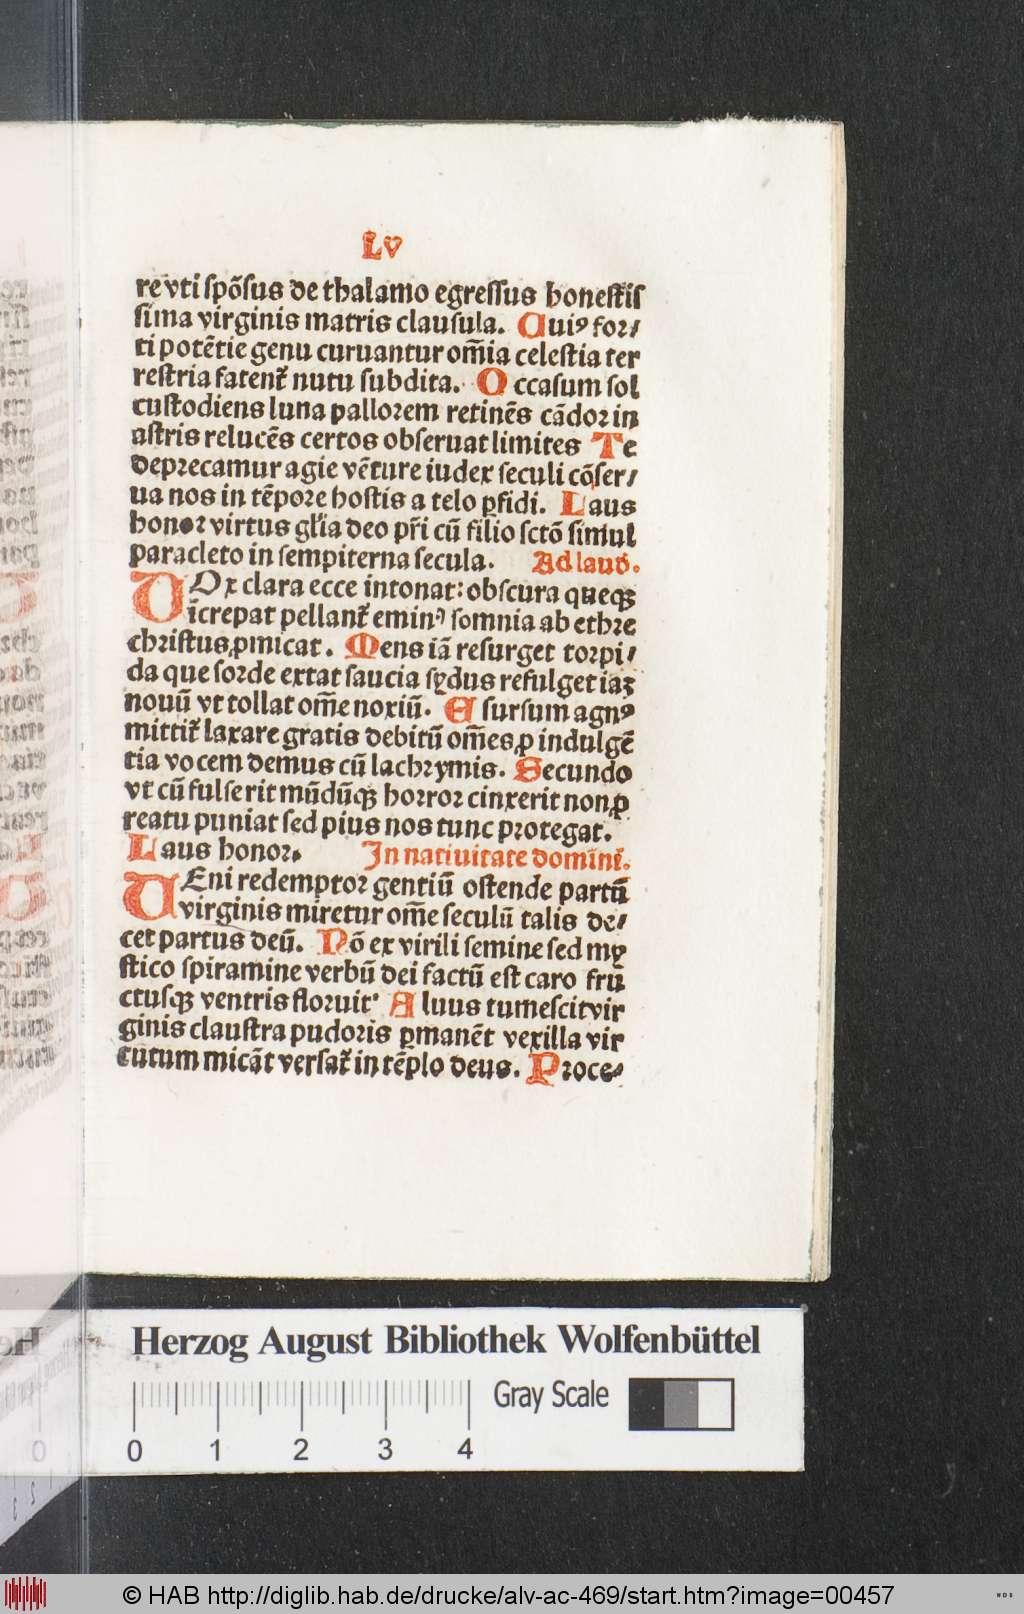 Lv
re vti spõsus de thalamo egressus honestis
sima virginis matris clausula. Cuiꝰ for⸗
ti potẽtie genu curuantur om̃ia celestia ter
restria fatent᷑ nutu subdita. Occasum sol
custodiens luna pallorem retinẽs cãdor in
astris relucẽs certos obseruat limites Te
deprecamur agie vẽture iudex seculi cõser⸗
ua nos in tẽpore hostis a telo ꝑfidi. Laus
honor virtus gl'ia deo pr̃i cũ filio sctõ simul
paracleto in sempiterna secula. Ad laud̃.
VOx clara ecce intonat: obscura queqꝫ
ĩcrepat pellant᷑ eminꝰ somnia ab ethre
christus ꝓmicat. Mens iã resurget torpi⸗
da que sorde extat saucia sydus refulget iaꝫ
nouũ vt tollat om̃e noxiũ. E sursum agnꝰ
mittit᷑ laxare gratis debitũ om̃es ꝓ indulgẽ
tia vocem demus cũ lachrymis. Secundo
vt cũ fulserit mũdũqꝫ horror cinxerit non ꝓ
reatu puniat sed pius nos tunc protegat.
Laus honor. In natiuitate domini᷑.
VEni redemptor gentiũ ostende partũ
virginis miretur om̃e seculũ talis de⸗
cet partus deũ. Nõ ex virili semine sed my
stico spiramine verbũ dei factũ est caro frũ
ctusqꝫ ventris floruit. Aluus tumescit vir
ginis claustra pudoris ꝑmanẽt vexilla vir
tutum micãt versat᷑ in tẽplo deus. Proce⸗
Herzog August Bibliothek Wolfenbüttel
Gray Scale
0 1 2 3 4
© HAB http://diglib.hab.de/drucke/alv-ac-469/start.htm?image=00457